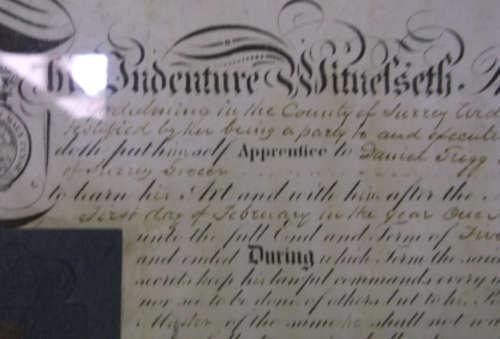 This Indenture Witnesseth.
Godalming in the County of Surrey
testified by her being a party to and
doth put himself Apprentice to Daniel Trigg
of Surrey Grocer
to learn his Art and with him after the
First day of February in the Year One
unto the full End and Term of
and ended During which Term the said
secrets keep his lawful commands every
nor see to be done of others but to his
Master, of the same he shall not